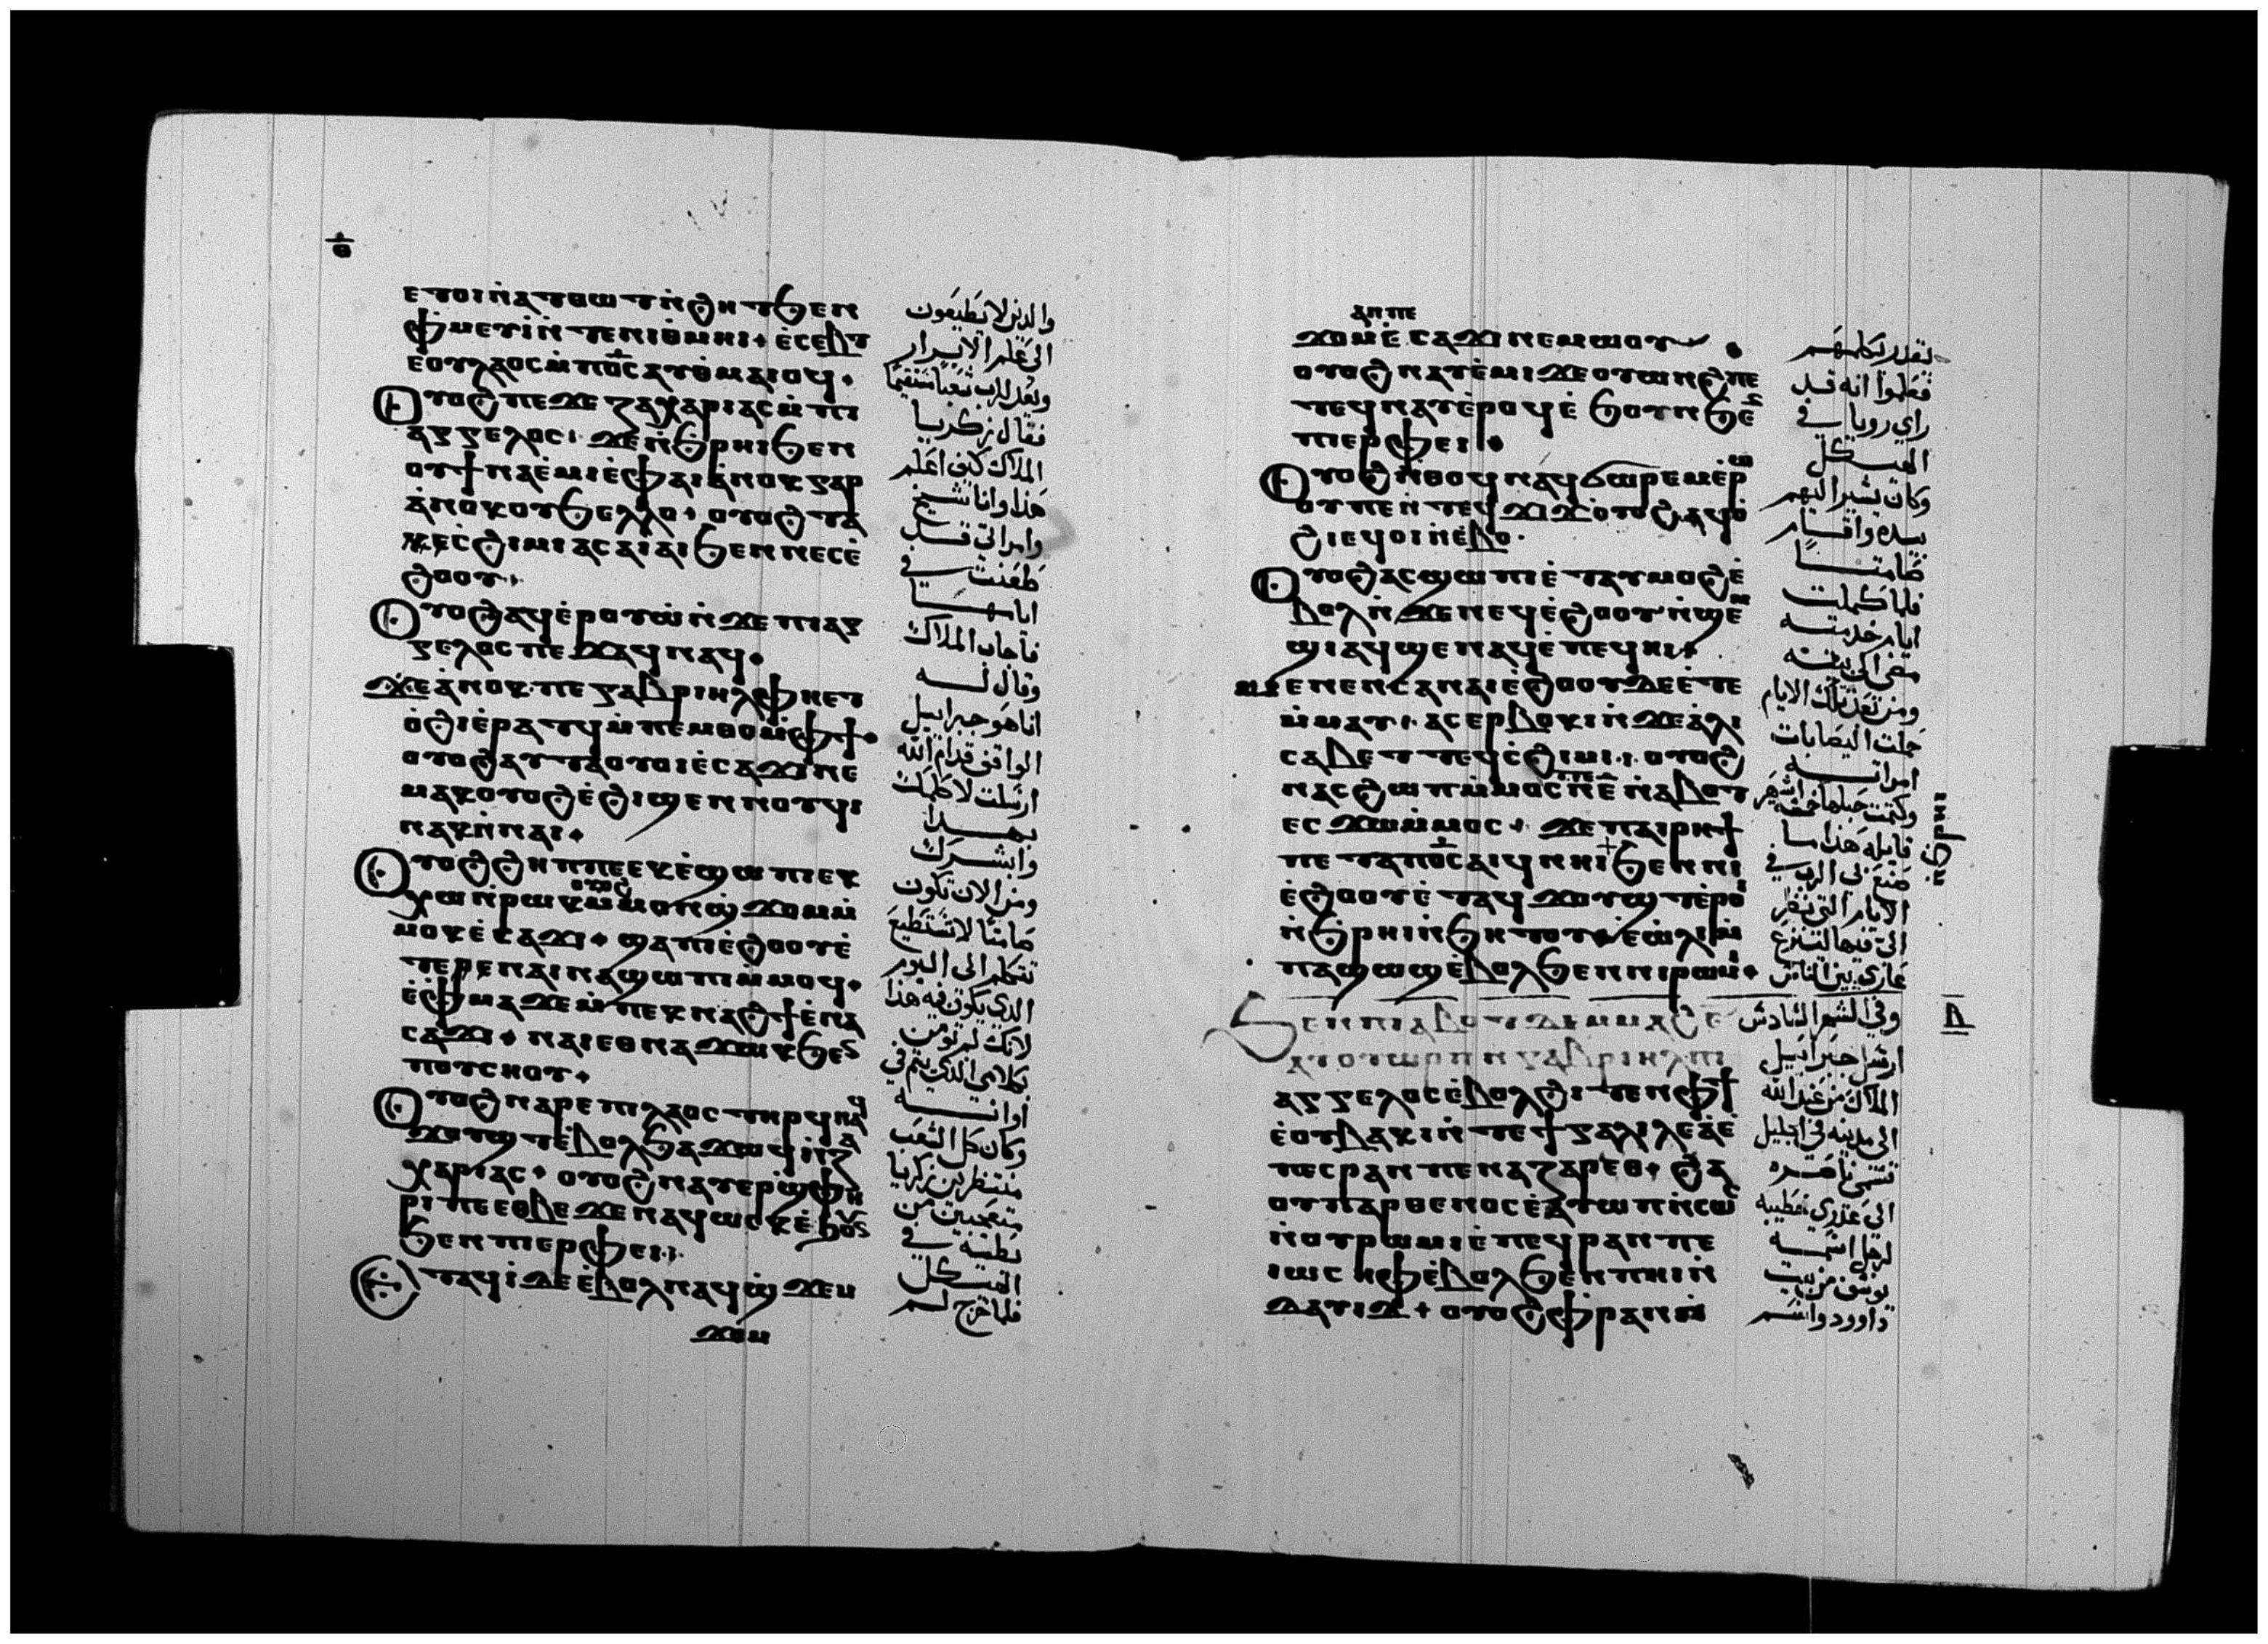 ⲑ
ⲉⲧⲟⲓⲛ̀ⲁⲧⲑⲱⲧⲛ̀ϩⲏⲧϧⲉⲛ
ⲫ̀ⲙⲉⲩⲓ̀ⲛ̀ⲧⲉⲛⲓⲑⲙⲏⲓ. ⲉ̀ⲥⲉⲃⲧ
ⲉⲟⲩⲗⲁⲟⲥⲙ̀ⲡⲟ̅ⲥ̅ⲁⲩⲑⲙⲁⲓⲟϥ.
ⲟⲩⲟϩⲡⲉϫⲉⲍⲁⲭⲁⲣⲓⲁⲥⲙ̀ⲡⲓ
ⲁⲅⲅⲉⲗⲟⲥ. ϫⲉⲛ̀ϧⲣⲏⲓϧⲉⲛ
ⲟⲩϯⲛⲁⲉ̀ⲙⲓⲉ̀ⲫⲁⲓⲁ̀ⲛⲟⲕⲅⲁⲣ
ⲁ̀ⲛⲟⲕⲟⲩϧⲉⲗⲗⲟ. ⲟⲩⲟϩⲧⲁ
ⲕⲉⲥ̀ϩⲓⲙⲓⲁⲥⲁⲓⲁⲓϧⲉⲛⲛⲉⲥⲉ̀
ϩⲟⲟⲩ.
ⲟⲩⲟϩⲁϥⲉ̀ⲣⲟⲩⲱ̀ⲛ̀ϫⲉⲡⲓⲁⲅ
ⲅⲉⲗⲟⲥⲡⲉϫⲁϥⲛⲁϥ.
ϫⲉⲁ̀ⲛⲟⲕ.ⲡⲉⲅⲁⲃⲣⲓⲏⲗⲫⲏⲉⲧ
ⲟ̀ϩⲓⲉ̀ⲣⲁⲧϥⲙ̀ⲡⲉⲙⲑⲟⲙ̀ⲫϯ.
ⲟⲩⲟϩⲁⲩⲧⲁⲟⲩⲟⲓⲉ̀ⲥⲁϫⲓⲛⲉ
ⲙⲁⲕⲟⲩⲟϩⲉ̀ϩⲓϣⲉⲛⲛⲟⲩϥⲓ
ⲛⲁⲕⲛ̀ⲛⲁⲓ.
ⲟⲩⲟϩϩⲏⲡⲡⲉⲉⲕⲉ̀ϣⲱⲡⲓⲉⲕ
ⲭⲱⲛ̀ⲣⲱⲕⲟⲩⲟϩⲙ̀ⲙⲟⲛϣ̀ϫⲟⲙⲙ̀
ⲙⲟⲕⲉ̀ⲥⲁϫⲓ. ϣⲁⲡⲓⲉ̀ϩⲟⲟⲩⲉ̀
ⲧⲉⲣⲉⲛⲁⲓⲛⲁϣⲱⲡⲓⲙ̀ⲙⲟϥ.
ⲉ̀ⲫⲙⲁϫⲉⲙ̀ⲡⲉⲕⲛⲁϩϯⲉ̀ⲛⲁ
ⲥⲁϫⲓ. ⲛⲁⲓⲉⲑⲛⲁϫⲱⲕϧⲉⲛ
ⲡⲟⲩⲥⲏⲟⲩ.
ⲟⲩⲟϩⲛⲁⲣⲉⲡⲓⲗⲁⲟⲥⲧⲏⲣϥⲛⲁϥ
ϫⲟⲩϣⲧⲉ̀ⲃⲟⲗϧⲁϫⲱϥⲛ̀ⲍⲁ
ⲭⲁⲣⲓⲁⲥ. ⲟⲩⲟϩⲛⲁⲩⲉⲣϣ̀ⲫⲏ
ⲣⲓⲡⲉⲉⲑⲃⲉϫⲉⲛⲁϥⲱⲥⲕⲉ̀ϧⲟⲩⲛ
ϧⲉⲛⲡⲓⲉⲣⲫⲉⲓ.
ⲉⲧⲁϥⲓ̀ⲇⲉⲉ̀ⲃⲟⲗⲛⲁϥϣ̀ϫⲉⲙ
ϫⲟⲙ
والدين لا تطيعون
الى علم الابرار
ويعد للرب شعبا مستقيما
فقال زكريا
الملاك كيف اعلم
هذا وانا شيخ
وامراتي قد
طعنت في
ايامها
فاجاب الملاك
وقال له
انا هو جبراييل
الواقف قدام الله
ارسلت لاكلمك
بهذا
وابشرك
ومن الان تكون
صامتا لا تستطيع
تتكلم الى اليوم
الدي يكون فيه هذا
لانك لم تومن
بكلامي الذي يتم في
اوانه
وكان كل الشعب
منتظرين زكريا
متعجبين من
بطيه في
الهيكل
فلما خرج لم
ⲁⲛⲡⲉ
ϫⲟⲙⲉ̀ⲥⲁϫⲓⲛⲉⲙⲱⲟⲩ
ⲟⲩⲟϩⲛⲁⲩⲉ̀ⲙⲓϫⲉⲟⲩⲱⲛϩⲡⲉ
ⲧⲉϥⲛⲁⲩⲉ̀ⲣⲟϥⲉ̀ϧⲟⲩⲛϧⲉⲛ
ⲡⲓⲉⲣⲫⲉⲓ.
ⲟⲩⲟϩⲛ̀ⲑⲟϥⲛⲁϥϭⲱⲣⲉⲙⲉ̀ⲣⲱ
ⲟⲩⲡⲉⲛ̀ⲧⲉϥϫⲓϫⲟⲩⲟϩⲛⲁϥⲟ̀
ϩⲓⲉϥⲟⲓⲛ̀ⲉⲃⲟ.
ⲟⲩⲟϩⲁⲥϣⲱⲡⲓⲉ̀ⲧⲁⲩⲙⲟϩⲉ̀
ⲃⲟⲗⲛ̀ϫⲉⲛⲉϥⲉ̀ϩⲟⲟⲩⲛ̀ϣⲉⲙ
ϣⲓⲁϥϣⲉⲛⲁϥⲉ̀ⲡⲉϥⲏⲓ.
ⲙⲉⲛⲉⲛⲥⲁⲛⲁⲓⲉ̀ϩⲟⲟⲩⲇⲉⲉ̀ⲧⲉ
ⲙ̀ⲙⲁⲩ. ⲁⲥⲉⲣⲃⲟⲕⲓⲛ̀ϫⲉⲉ̀ⲗⲓ
ⲥⲁⲃⲉⲧⲧⲉϥⲥ̀ϩⲓⲙⲓ. ⲟⲩⲟϩ
ⲛⲁⲥϩⲱⲡⲙ̀ⲙⲟⲥⲡⲉⲛ̀ⲉ̅ⲛ̀ⲁ̀ⲃⲟⲧ
ⲉⲥϫⲱⲙ̀ⲙⲟⲥ. ϫⲉⲡⲁⲓⲣⲏϯ
ⲡⲉⲧⲁⲡⲟ̅ⲥ̅ⲁⲓϥⲛⲏⲓϧⲉⲛⲛⲓ
ⲉ̀ϩⲟⲟⲩⲉ̀ⲧⲁϥϫⲟⲩϣⲧⲉ̀ⲣⲟⲓ
ⲛ̀ϧⲣⲏⲓⲛ̀ϧⲏⲧⲟⲩⲉ̀ⲱ̀ⲗⲓⲙ̀
ⲡⲁϣⲱϣⲉ̀ⲃⲟⲗϧⲉⲛⲛⲓⲣⲱⲙⲓ.
ϧⲉⲛⲡⲓⲁⲃⲟⲧⲇⲉⲙ̀ⲙⲁϩⲉ̅
ⲁⲩⲟⲩⲱⲣⲡⲛ̀ⲅⲁⲃⲣⲓⲏⲗⲡⲓ
ⲁⲅⲅⲉⲗⲟⲥⲉ̀ⲃⲟⲗϩⲓⲧⲉⲛⲫϯ
ⲉ̀ⲟⲩⲃⲁⲕⲓⲛ̀ⲧⲉϯⲅⲁⲗⲓⲗⲉⲁⲉ̀
ⲡⲉⲥⲣⲁⲛⲡⲉⲛⲁⲍⲁⲣⲉⲑ. ϩⲁ
ⲟⲩⲡⲁⲣⲑⲉⲛⲟⲥⲉ̀ⲁⲩⲱⲡⲛ̀ⲥⲱⲥ
ⲛ̀ⲟⲩⲣⲱⲙⲓⲉ̀ⲡⲉϥⲣⲁⲛⲡⲉ
ⲓⲱⲥⲏⲫⲉ̀ⲃⲟⲗϧⲉⲛⲡⲏⲓⲛ̀
ⲇⲁⲩⲓⲇ. ⲟⲩⲟϩⲫⲣⲁⲛⲛ̀
يقدر يكلمهم
فعلموا انه قد
راي رويا في
الهيكل
وكان يشير اليهم
بيده واقام
صامتا
فلما كملت
ايام خدمته
مضى الى بيته
ومن بعد تلك الايام
حبلت اليصابات
امراته
وكتمت حبلها خمسة اشهر
قايله هذا ما
صنع بي الرب في
الايام التي نظر
الي فيها لينزع
عاري بين الناس
وفي الشهر السادس
ارسل جبراييل
الملاك من عند الله
الى مدينه في الجليل
تسمى ناصره
الى عذرى خطيبه
لرجل اسمه
يوسف من بيت
داوود واسم
ⲃ